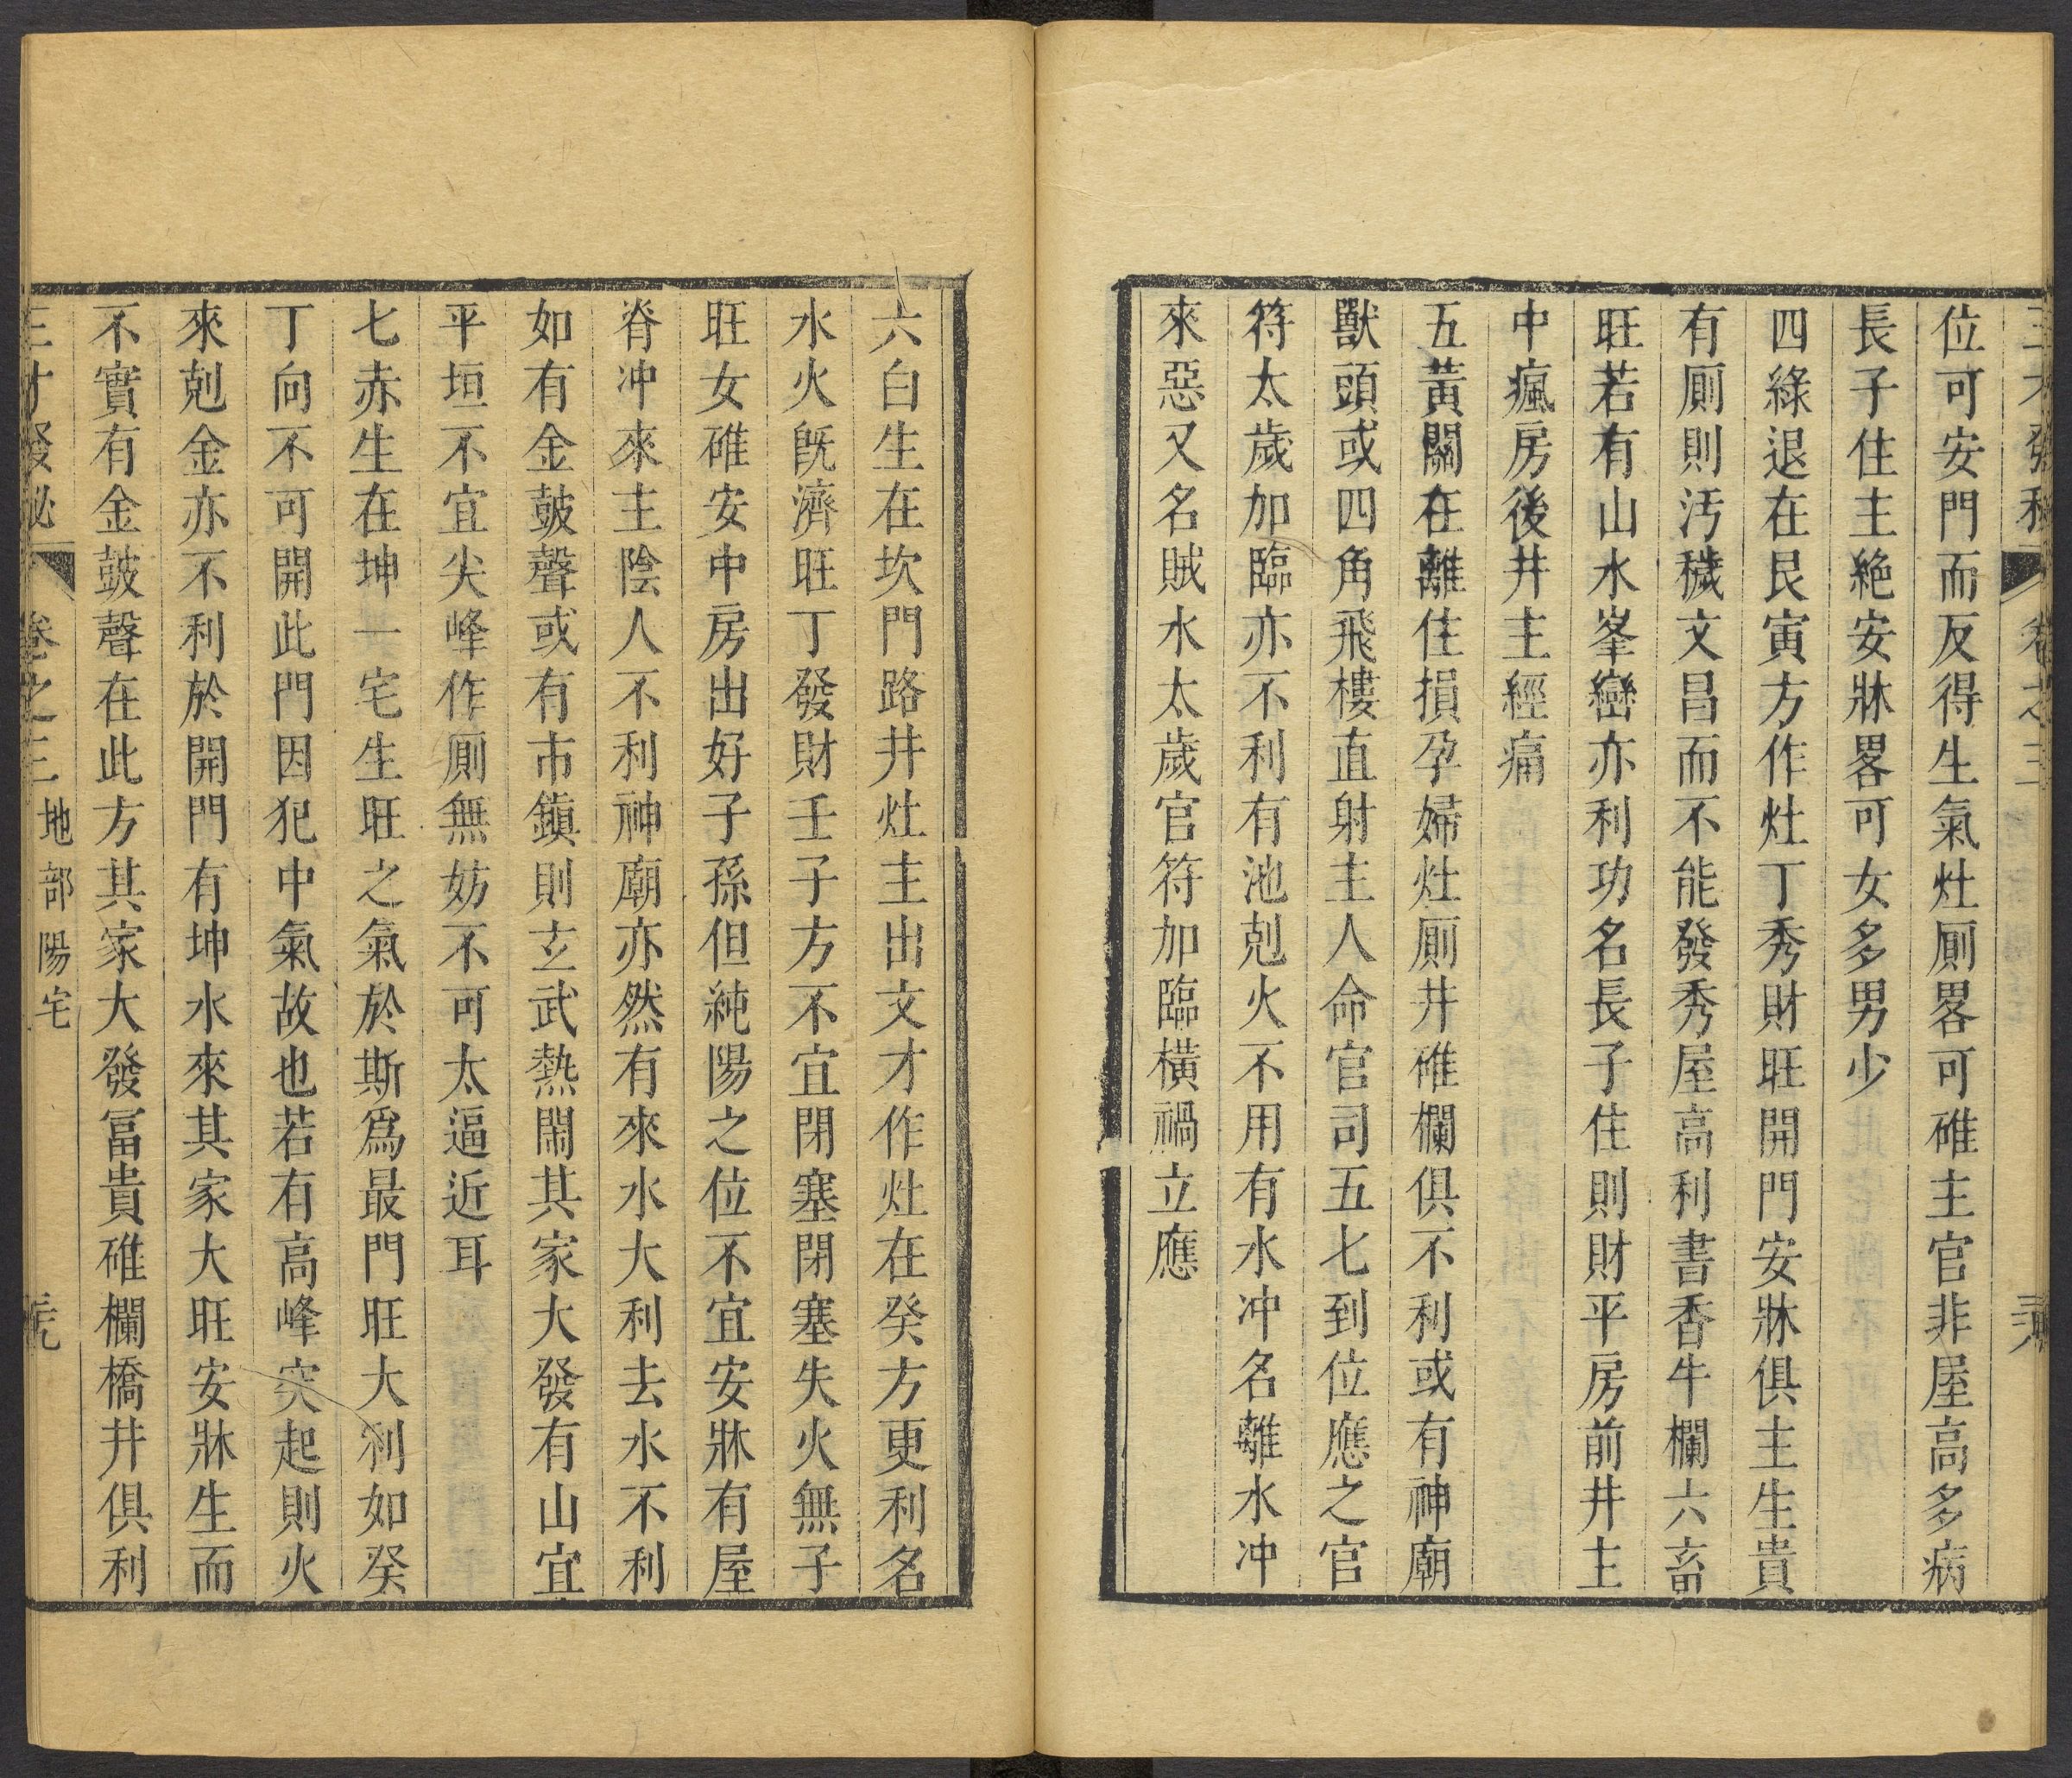 三才發秘 卷之三
位可安門而反得生氣灶厠畧可碓主官非屋高多病
長子住主絶安牀畧可女多男少
四綠退在艮寅方作灶丁秀財旺開門安牀俱主生貴
有厠則汚穢文昌而不能發秀屋高利書香牛欄六畜
旺若有山水峯巒亦利功名長子住則財平房前井主
中瘋房後井主經痛
五黃關在離住損孕婦灶厠井碓欄俱不利或有神廟
獸頭或四角飛樓直射主人命官司五七到位應之官
符太歲加臨亦不利有池剋火不用有水冲名離水冲
來惡又名賊水太歲官符加臨橫禍立應
六白生在坎門路井灶主出文才作灶在癸方更利名
水火旣濟旺丁發財壬子方不宜閉塞閉塞失火無子
旺女碓安中房出好子孫但純陽之位不宜安牀有屋
脊冲來主陰人不利神廟亦然有來水大利去水不利
如有金皷聲或有市鎮則玄武熱鬧其家大發有山宜
平垣不宜尖峰作厠無妨不可太逼近耳
七赤生在坤一宅生旺之氣於斯爲最門旺大利如癸
丁向不可開此門因犯中氣故也若有高峰突起則火
來剋金亦不利於開門有坤水來其家大旺安牀生而
不實有金皷聲在此方其家大發冨貴碓欄橋井俱利
三才發秘 卷之三 地部陽宅